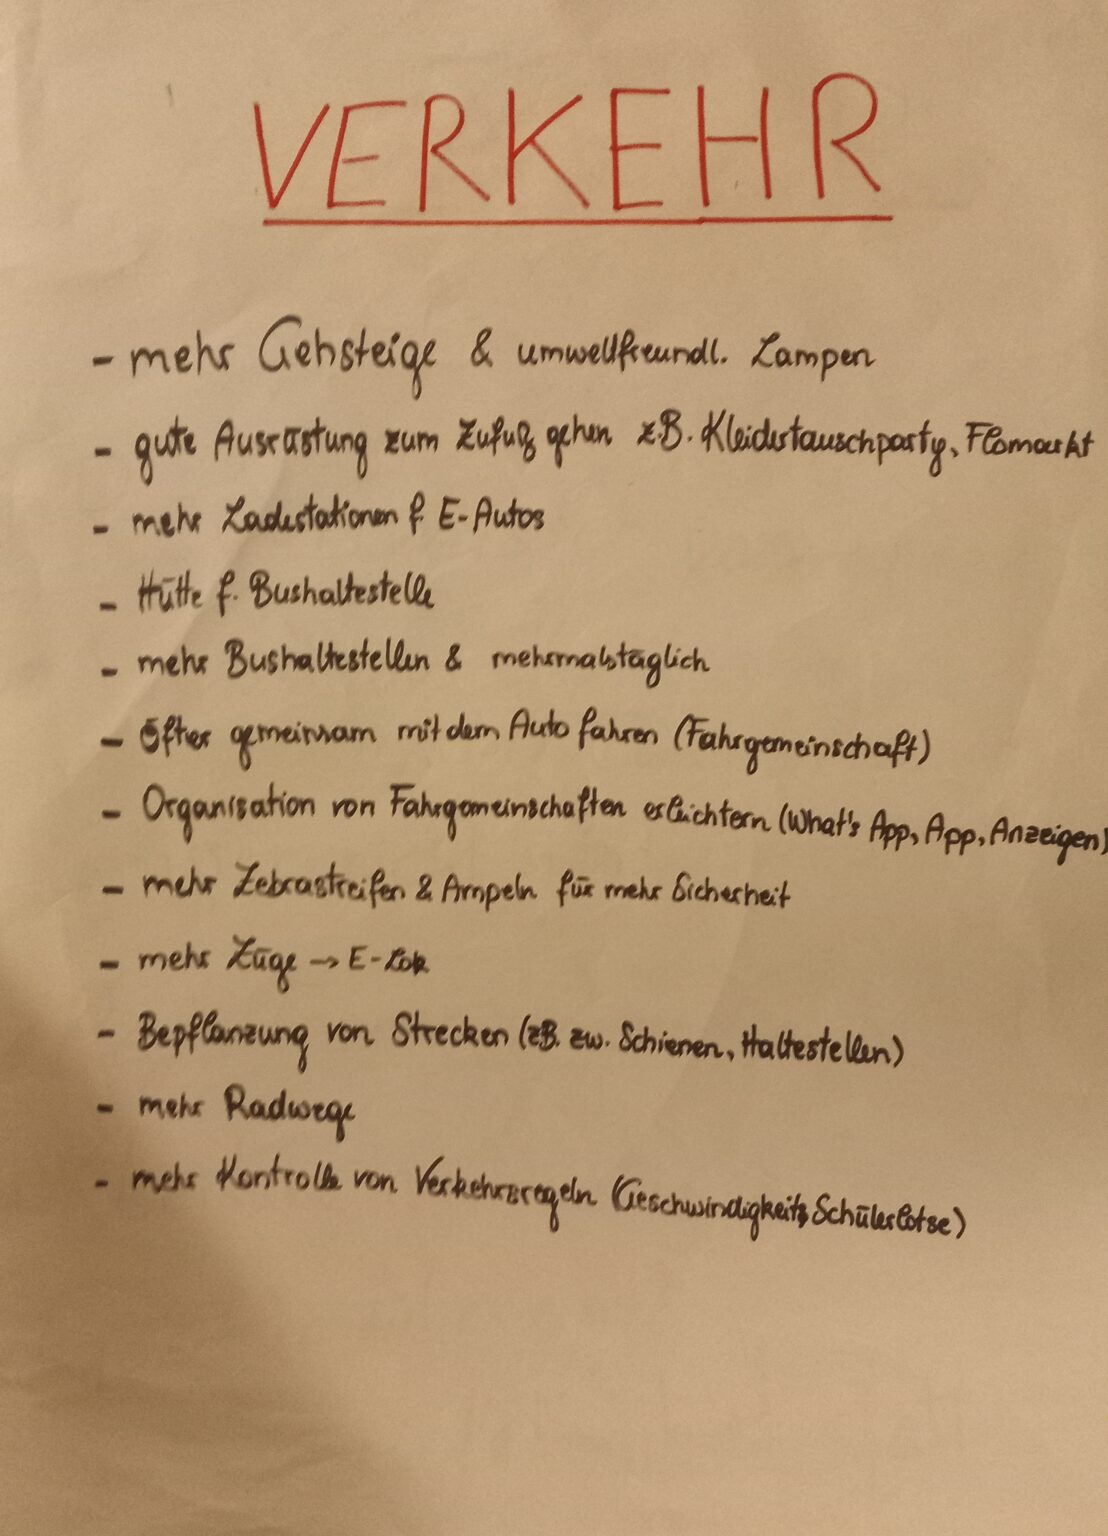 VERKEHR
- mehr Gehsteige & umweltfreundl. Lampen
- gute Ausrüstung zum Zufuß gehen z.B. Kleidertauschparty, Flomarkt
- mehr Ladestationen f. E-Autos
- Hütte f. Bushaltestelle
- mehr Bushaltestellen & mehrmalstäglich
- Öfter gemeinsam mit dem Auto fahren (Fahrgemeinschaft)
- Organisation von Fahrgemeinschaften erleichtern (What's App, App, Anzeigen)
- mehr Zebrastreifen & Ampeln für mehr Sicherheit
- mehr Züge → E-Lok
- Bepflanzung von Strecken (zB. zw. Schienen, Haltestellen)
- mehr Radwege
- mehr Kontrolle von Verkehrsregeln (Geschwindigkeit, Schülerlotse)